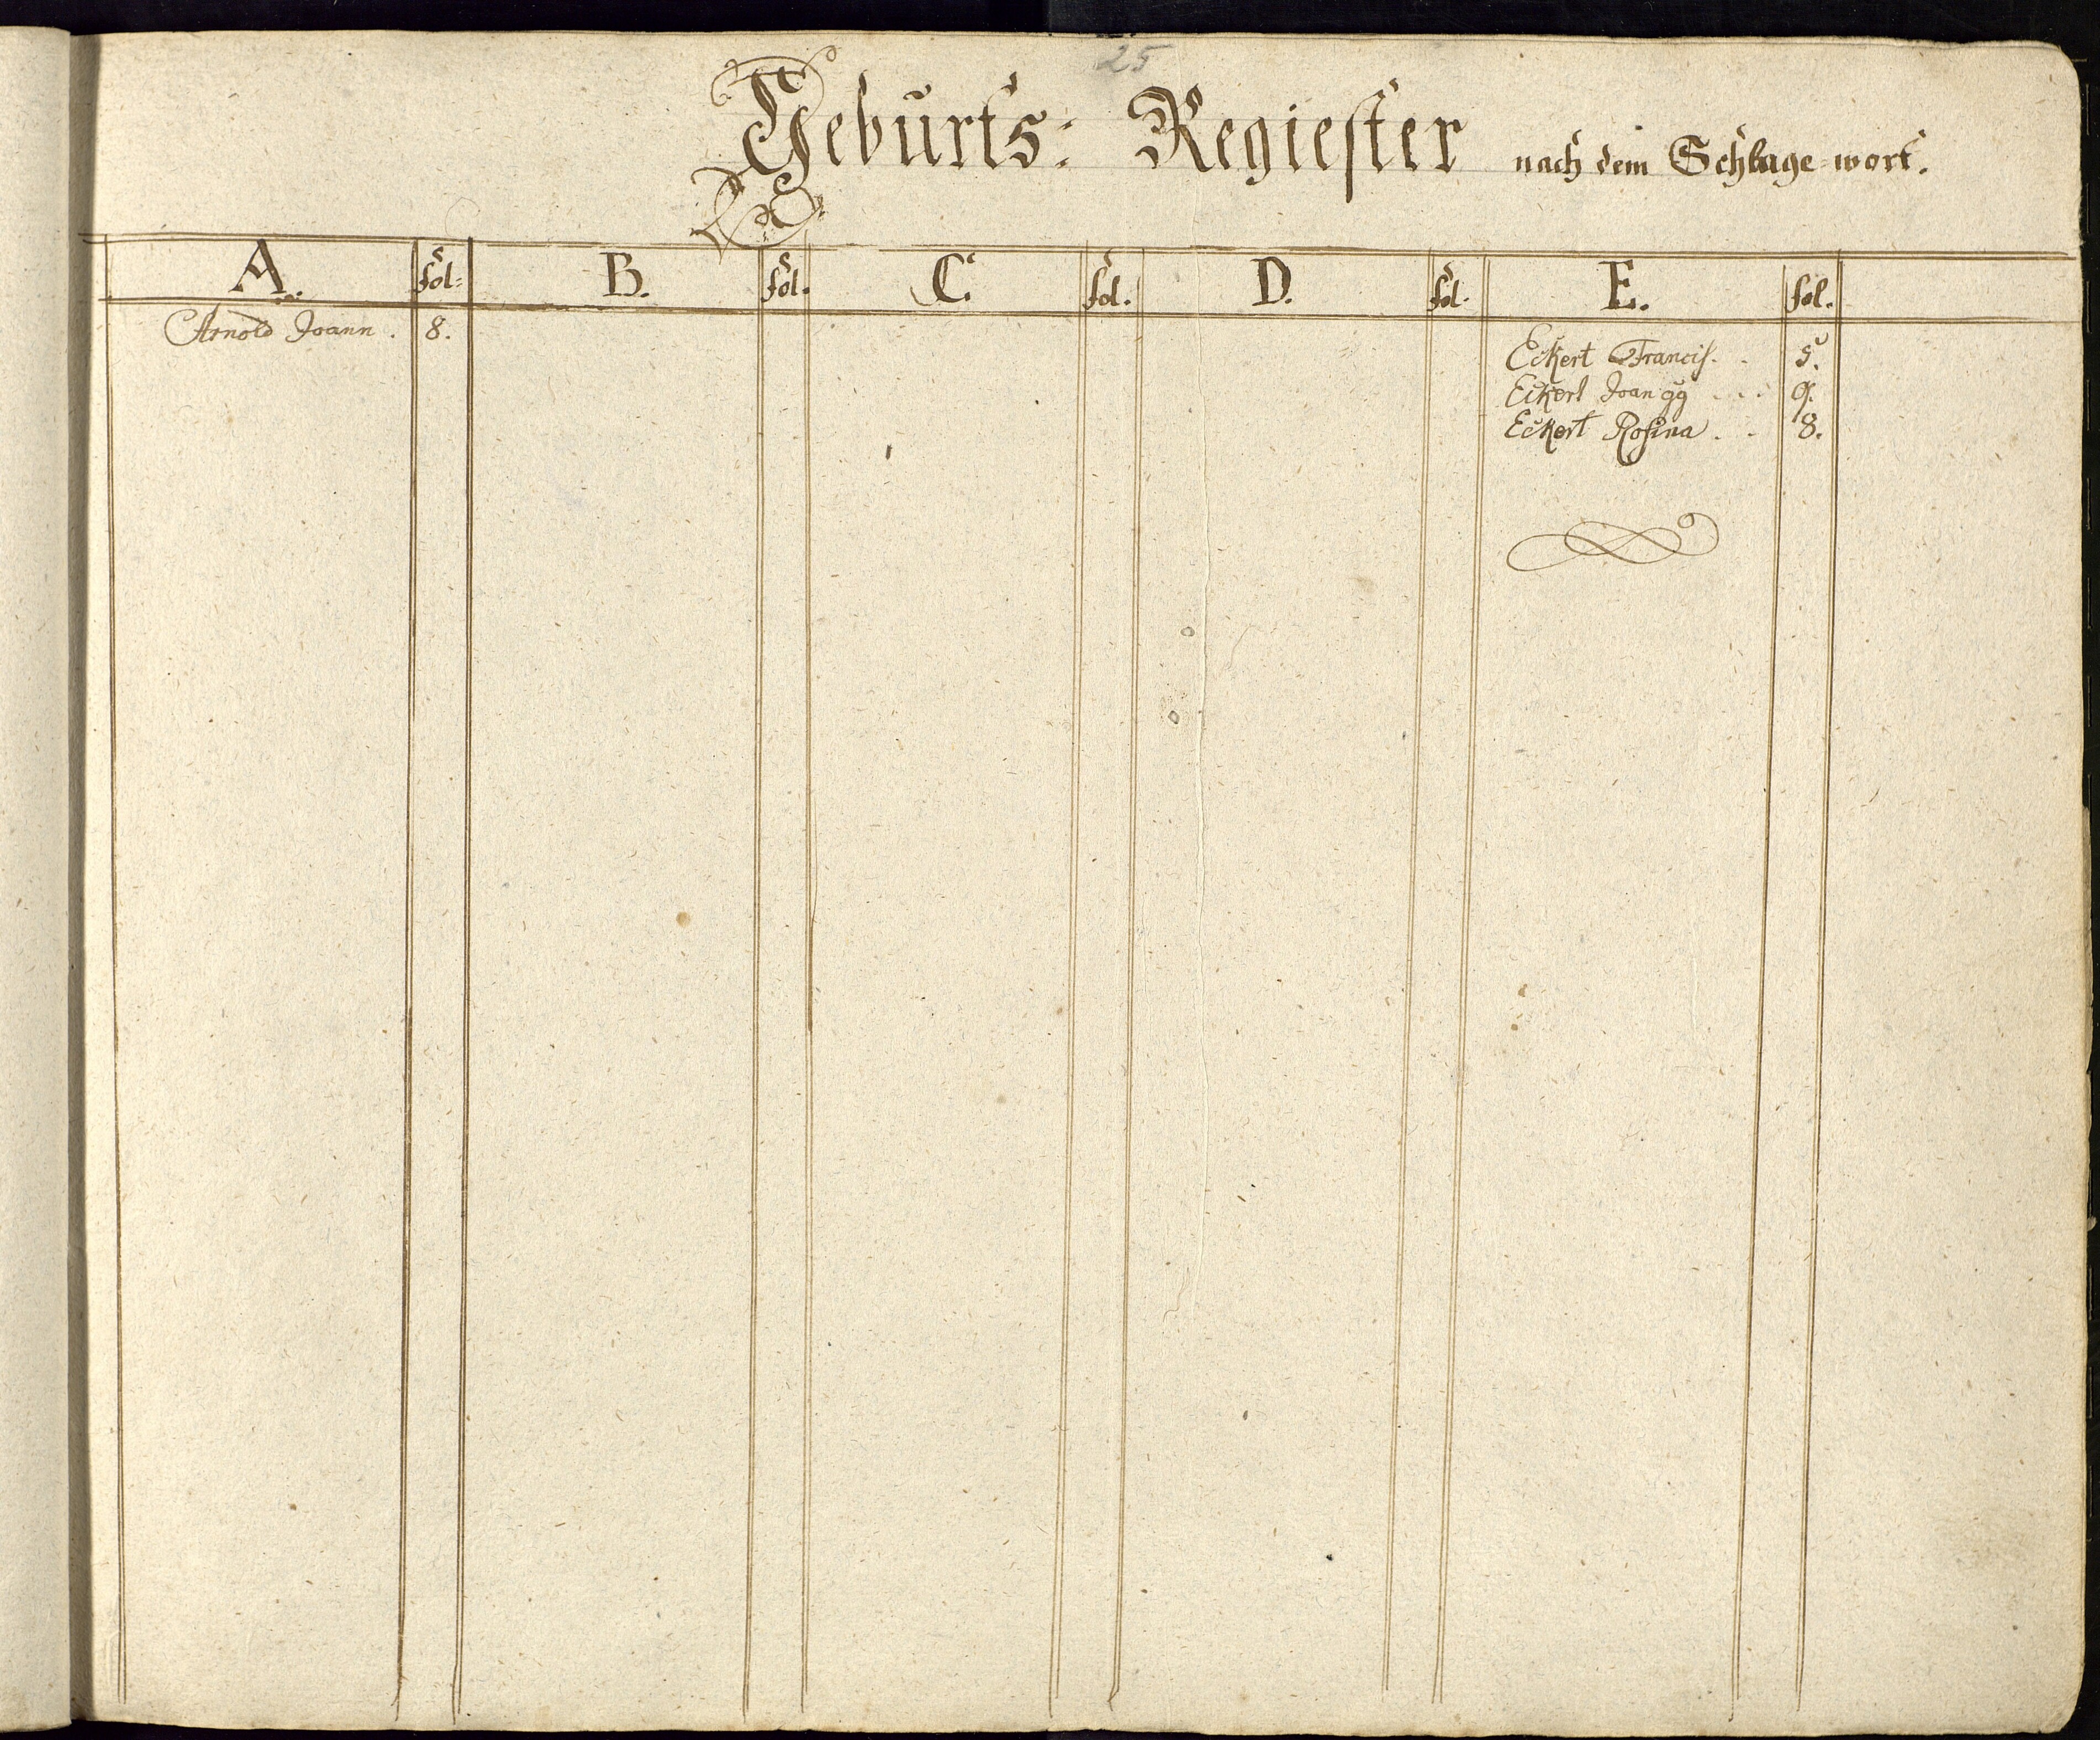 25
Geburts: Regiester nach dem Schlage=wort.
A. fol: B. fol. C. fol. D. fol. E. fol.
Arnold Joann. 8.
Eckert Francis. . 5.
Eckert Joan gg . . . 9.
Eckert Rosina . . 8.